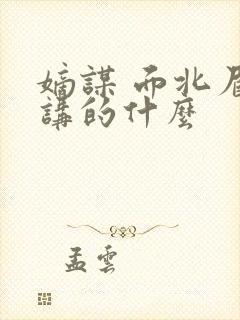 嫡謀 而北眉
講的什麼
孟雲